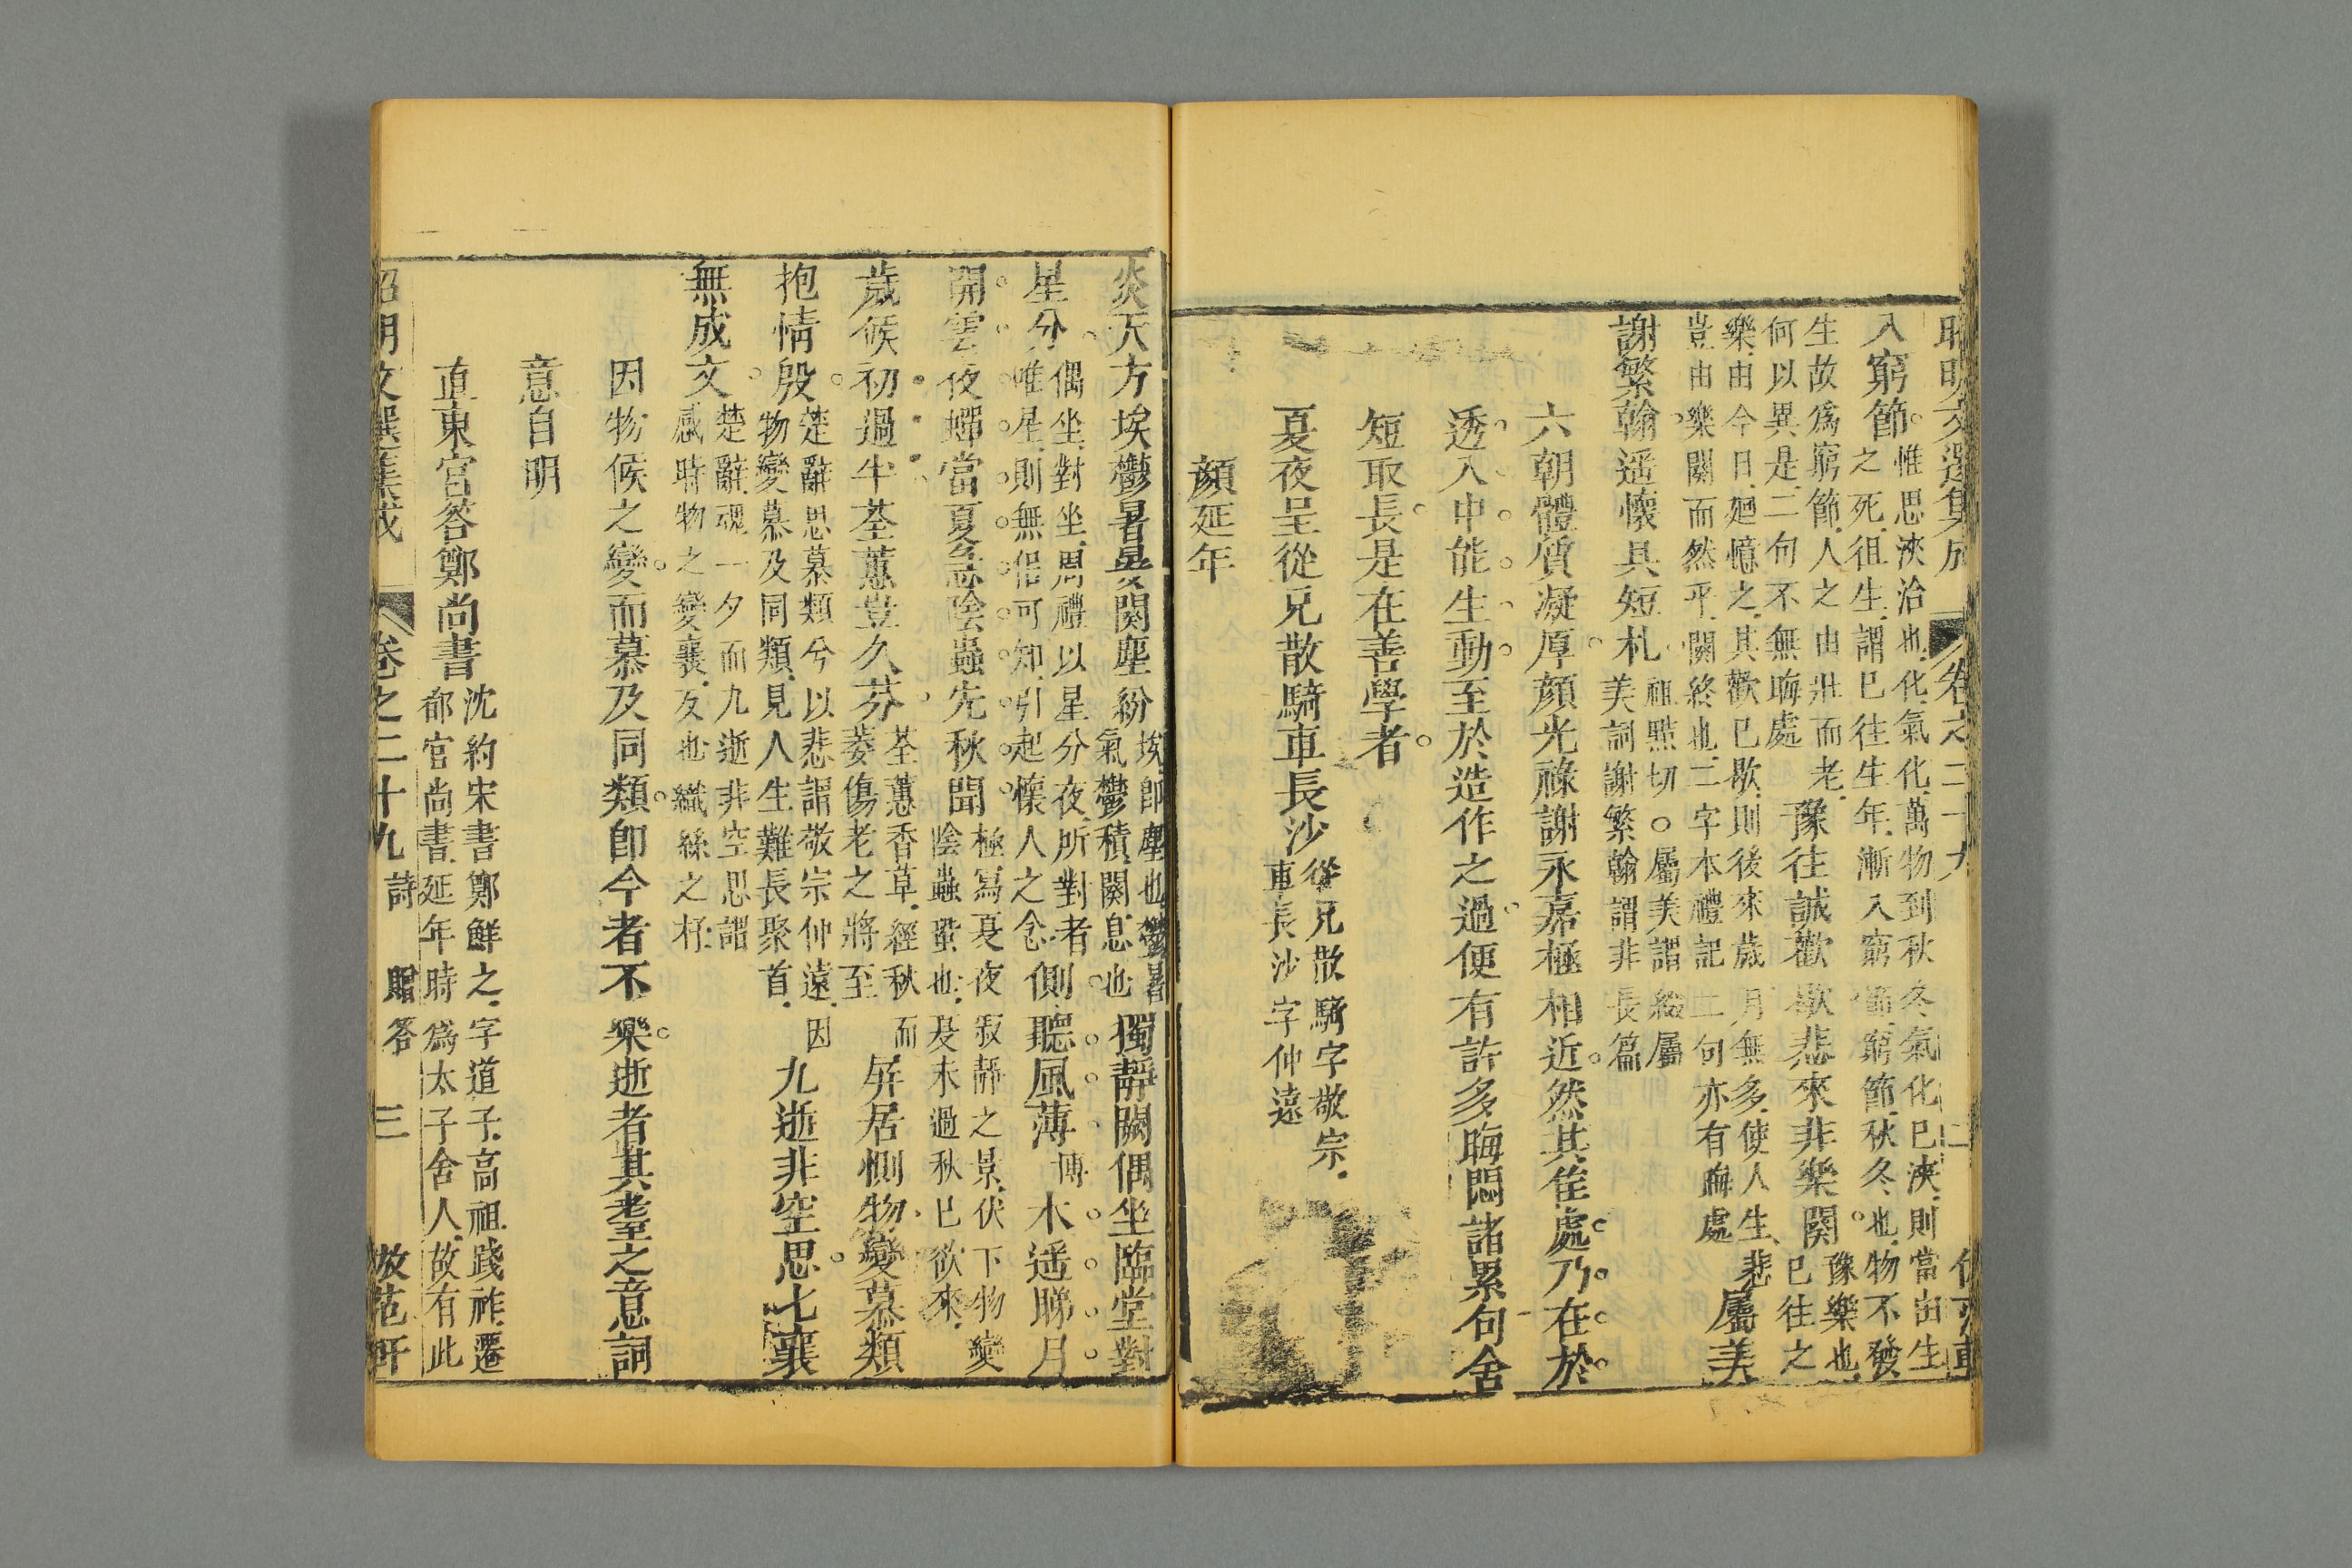 昭明文選集成 卷之二十九 二
入窮節惟思浹洽也化氣化萬物到秋冬氣化已浹則當由生
之死徂生謂已往生年漸入窮節窮節秋冬也物不發
生故為窮節人之由壯而老豫往誠歡歇悲來非樂闋豫樂也
何以異是二句不無晦處已往之
樂由今日廻憶之其歡已歇則後來歲月無多使人生悲
豈由樂闋而然乎闋終也二字本禮記二句亦有晦處屬美
謝繁翰遥懷具短札祖黠切○屬美謂綴屬
美詞謝繁翰謂非長篇
六朝體質凝厚顔光祿謝永嘉極相近然其佳處乃在於
透入中能生動至於造作之過便有許多晦悶諸累句舍
短取長是在善學者
夏夜呈從兄散騎車長沙從兄散騎字敬宗
車長沙字仲遠
顔延年
炎天方埃鬱暑晏闋塵紛埃即塵也鬱暑
氣鬱積闋息也獨靜闕偶坐臨堂對
星分偶坐對坐周禮以星分夜所對者
唯星則無侶可知引起懷人之念側聽風薄博木遥睇月
開雲夜蟬當夏急陰蟲先秋聞極寫夏夜寂靜之景伏下物變
陰蟲蛩也夏未過秋已欲來
歲候初過半荃蕙豈久芬荃蕙香草經秋而
萎傷老之將至屏居惻物變慕類
抱情殷楚辭思慕類兮以悲謂敬宗仲遠因
物變慕及同類見人生難長聚首九逝非空思七襄
無成文楚辭魂一夕而九逝非空思謂
感時物之變襄反也織絲之杼
因物候之變而慕及同類即今者不樂逝者其耋之意詞
意自明
直東宮答鄭尚書沈約宋書鄭鮮之字道子高祖踐祚遷
都官尚書延年時為太子舍人故有此
昭明文選集成 卷之二十九 詩 贈答 三 倣范軒